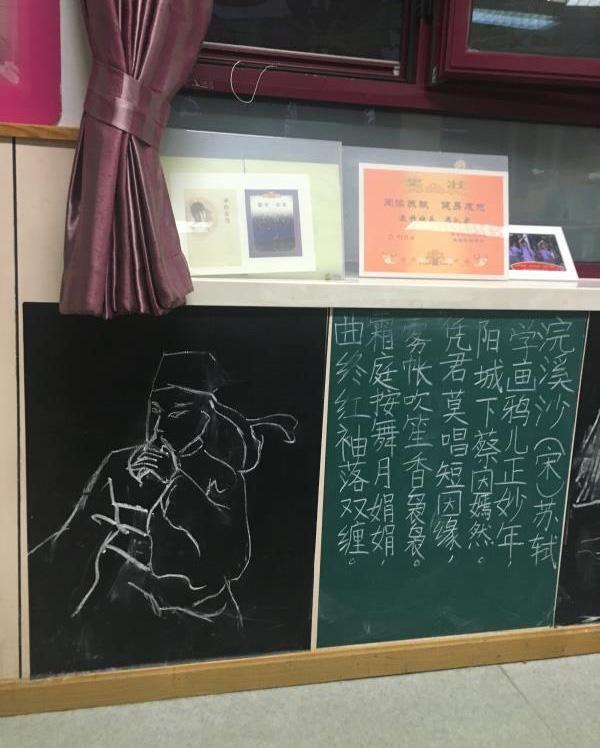 浣溪沙（宋）苏轼
学画鸦儿正妙年，
阳城下蔡因嫣然。
凭君莫唱短因缘，
雾帐吹笙香袅袅。
霜庭按舞月娟娟，
曲终红袖落双缠。